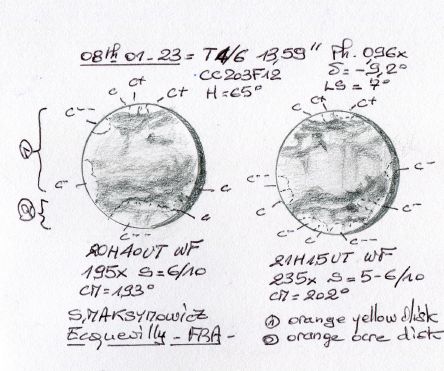 08th 01-23 = T4/6 13,59" Ph. 096x
CC203F12 δ=-9,2°
H=65° LS = 7°
C C+ C+ C+ C+
C-- C C
① C-- C-
② C- C C C-
C-- C- C--
20H40UT WF 21H15UT WF
195x S=6/10 235x S=5-6/10
CM=193° CM=202°
S, MAKSYMOWICZ ① orange yellow disk
Ecquevilly - ② orange ocre disk